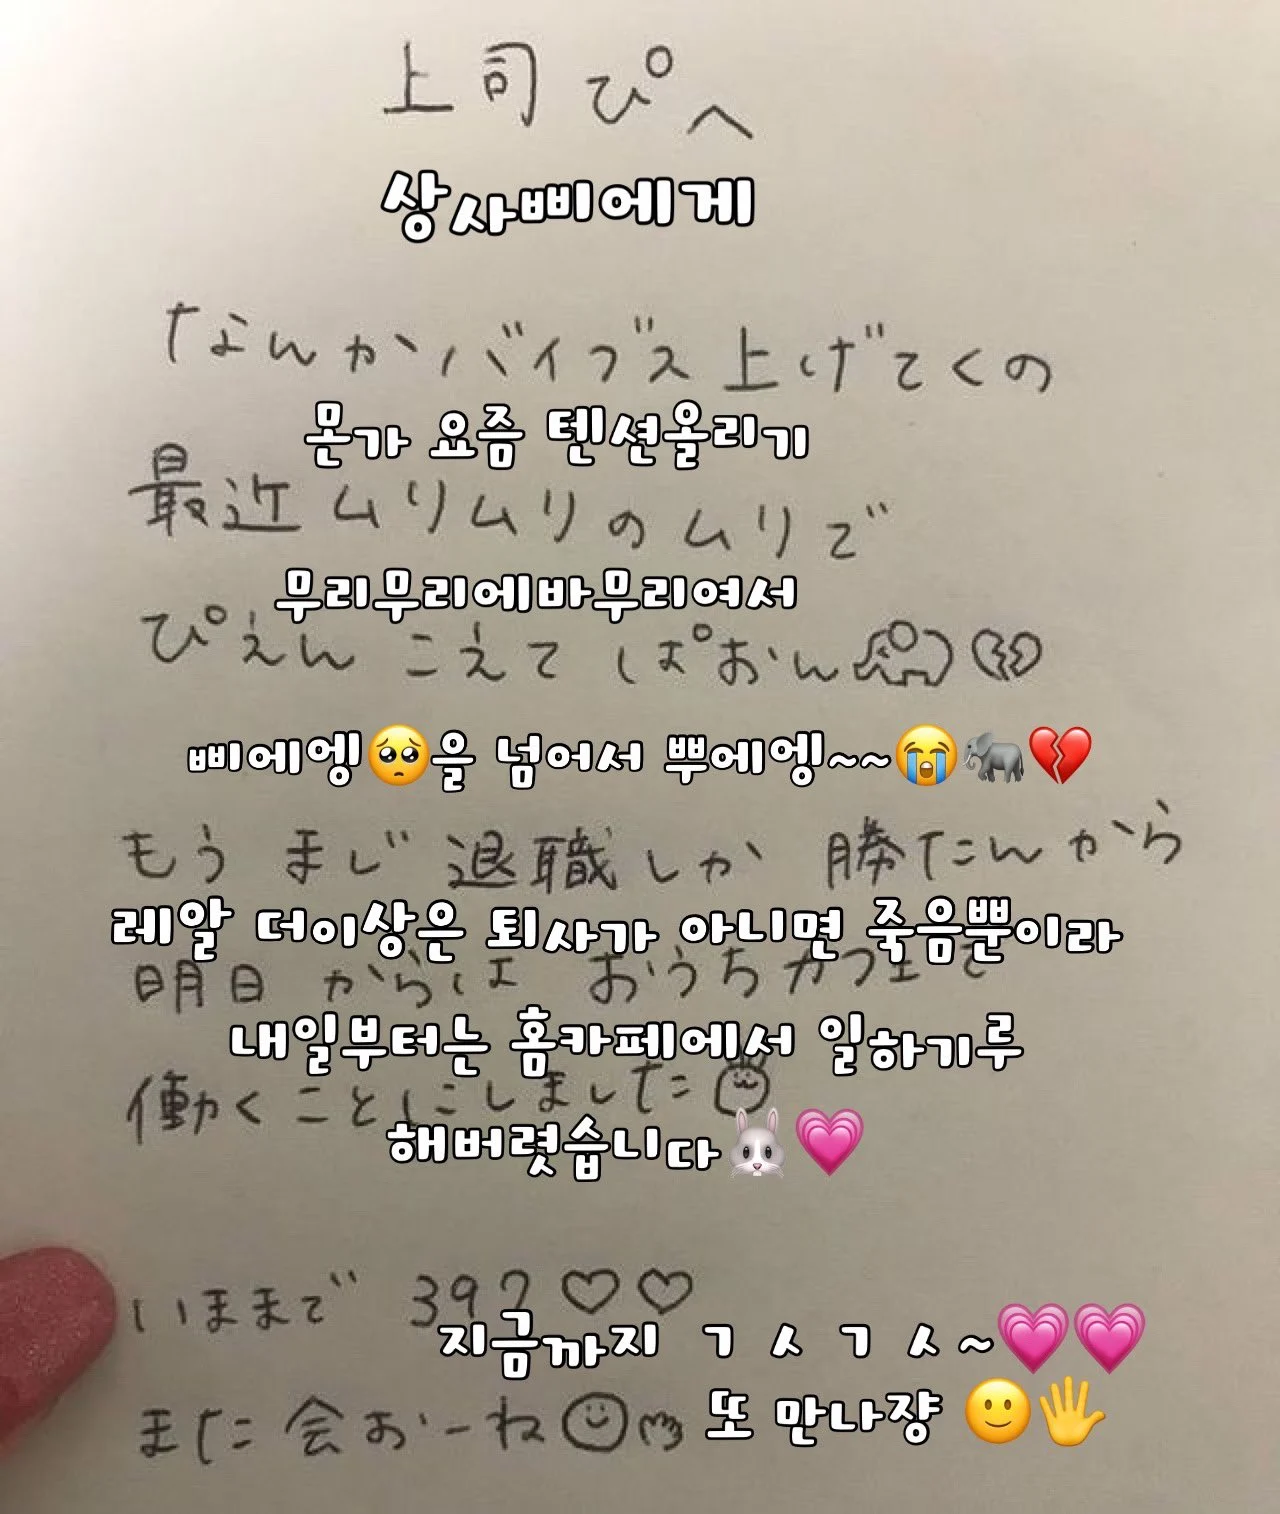 上司ぴへ
상사삐에게
なんかバイブス上げてくの
몬가 요즘 텐션올리기
最近ムリムリのムリで
무리무리에바무리여서
ぴえんこえてぱおん🐘💔
삐에엥🥺을 넘어서 뿌에엥~~😭🐘💔
もう まじ 退職しか 勝たんから
레알 더이상은 퇴사가 아니면 죽음뿐이라
明日からは おうちカフェで
내일부터는 홈카페에서 일하기루
働くことにしました
해버렸습니다🐰💗
いままで 39?♡♡
지금까지 ㄱㅅㄱㅅ~💗💗
また会おーね 또 만나쟝 🙂🖐